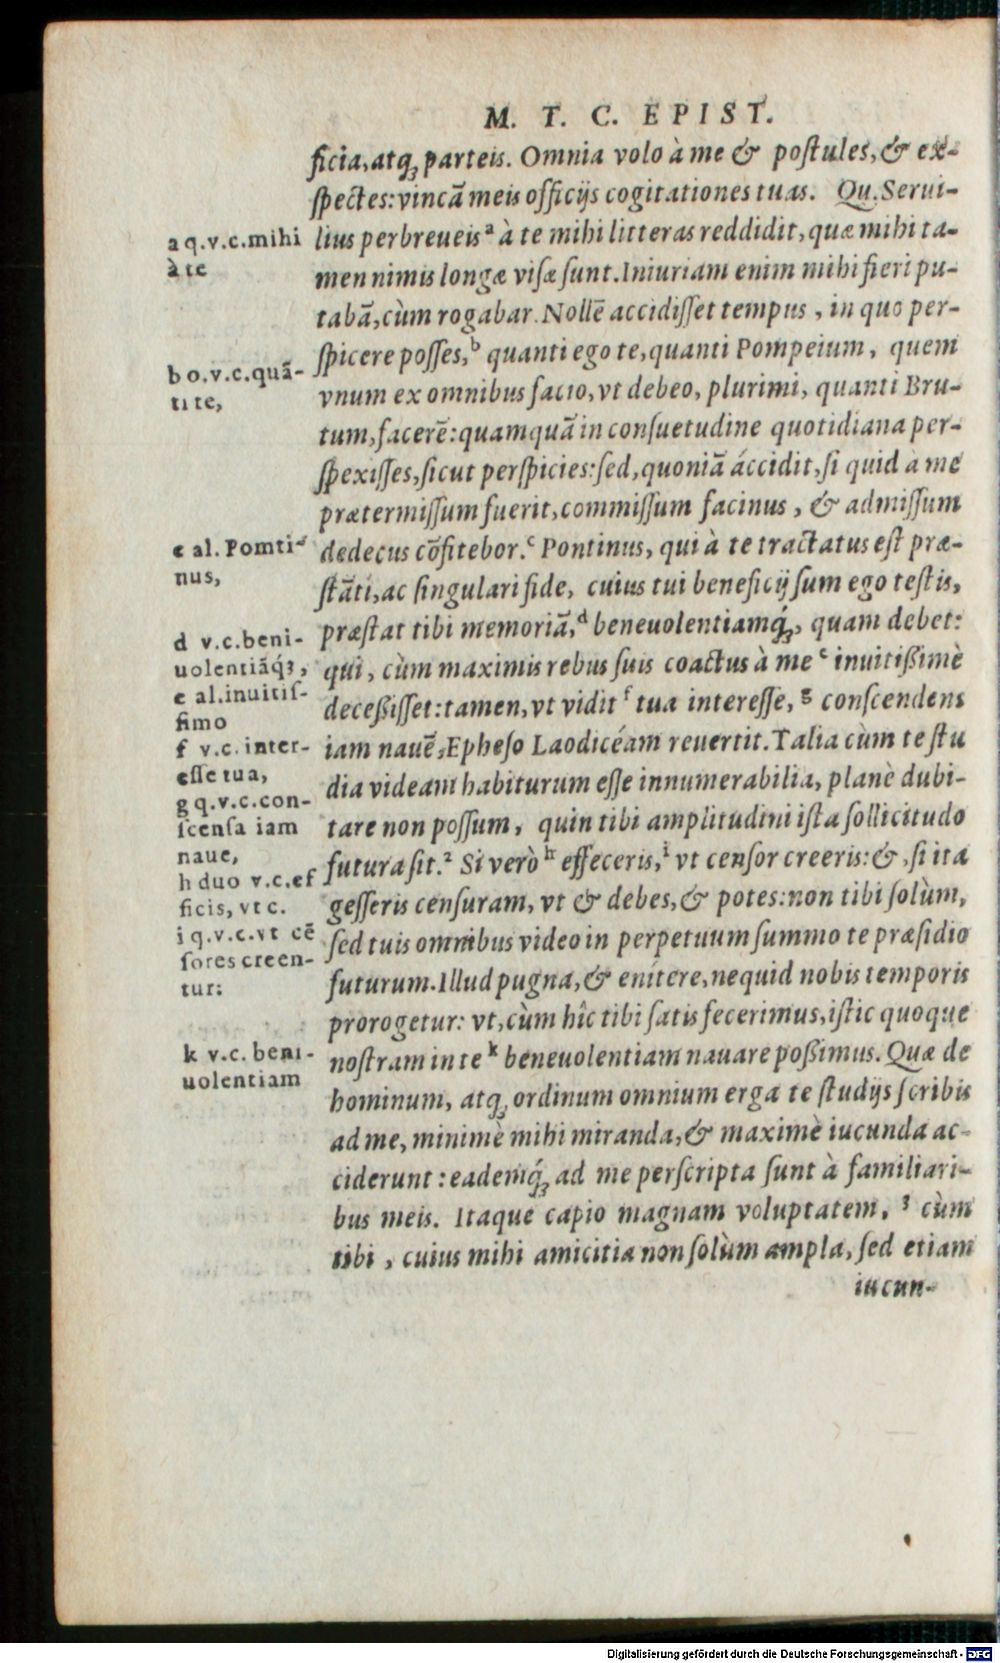 M. T. C. EPIST.
ficia, atq; parteis. Omnia volo à me & postules, & ex-
spectes: vincā meis officijs cogitationes tuas. Qu. Serui-
lius perbreueis ᵃ à te mihi litteras reddidit, quæ mihi ta-
men nimis longæ visæ sunt. Iniuriam enim mihi fieri pu-
tabā, cùm rogabar. Nollē accidisset tempus, in quo per-
spicere posses, ᵇ quanti ego te, quanti Pompeium, quem
vnum ex omnibus facio, vt debeo, plurimi, quanti Bru-
tum, facerē: quamquā in consuetudine quotidiana per-
spexisses, sicut perspicies: sed, quoniā áccidit, si quid à me
prætermissum fuerit, commissum facinus, & admissum
dedecus cōfitebor. ᶜ Pontinus, qui à te tractatus est præ-
stāti, ac singulari fide, cuius tui beneficij sum ego testis,
præstat tibi memoriā, ᵈ beneuolentiamq́;, quam debet:
qui, cùm maximis rebus suis coactus à me ᵉ inuitißimè
deceßisset: tamen, vt vidit ᶠ tua interesse, ᵍ conscendens
iam nauē, Epheso Laodicéam reuertit. Talia cùm te stu
dia videam habiturum esse innumerabilia, planè dubi-
tare non possum, quin tibi amplitudini ista sollicitudo
futura sit. ² Si verò ʰ effeceris, ⁱ vt censor creeris: &, si ita
gesseris censuram, vt & debes, & potes: non tibi solùm,
sed tuis omnibus video in perpetuum summo te præsidio
futurum. Illud pugna, & enitere, nequid nobis temporis
prorogetur: vt, cùm hîc tibi satis fecerimus, istic quoque
nostram in te ᵏ beneuolentiam nauare poßimus. Quæ de
hominum, atq; ordinum omnium erga te studijs scribis
ad me, minimè mihi miranda, & maximè iucunda ac-
ciderunt: eademq́; ad me perscripta sunt à familiari-
bus meis. Itaque capio magnam voluptatem, ³ cùm
tibi, cuius mihi amicitia non solùm ampla, sed etiam
iucun-
a q.v.c. mihi
à te
b o.v.c. quā-
ti te,
c al. Pomti-
nus,
d v.c. beni-
uolentiāq́;,
e al. inuitis-
simo
f v.c. inter-
esse tua,
g q.v.c. con-
scensa iam
naue,
h duo v.c. ef
ficis, vt c.
i q.v.c. vt cē
sores creen-
tur:
k v.c. beni-
uolentiam
Digitalisierung gefördert durch die Deutsche Forschungsgemeinschaft - DFG